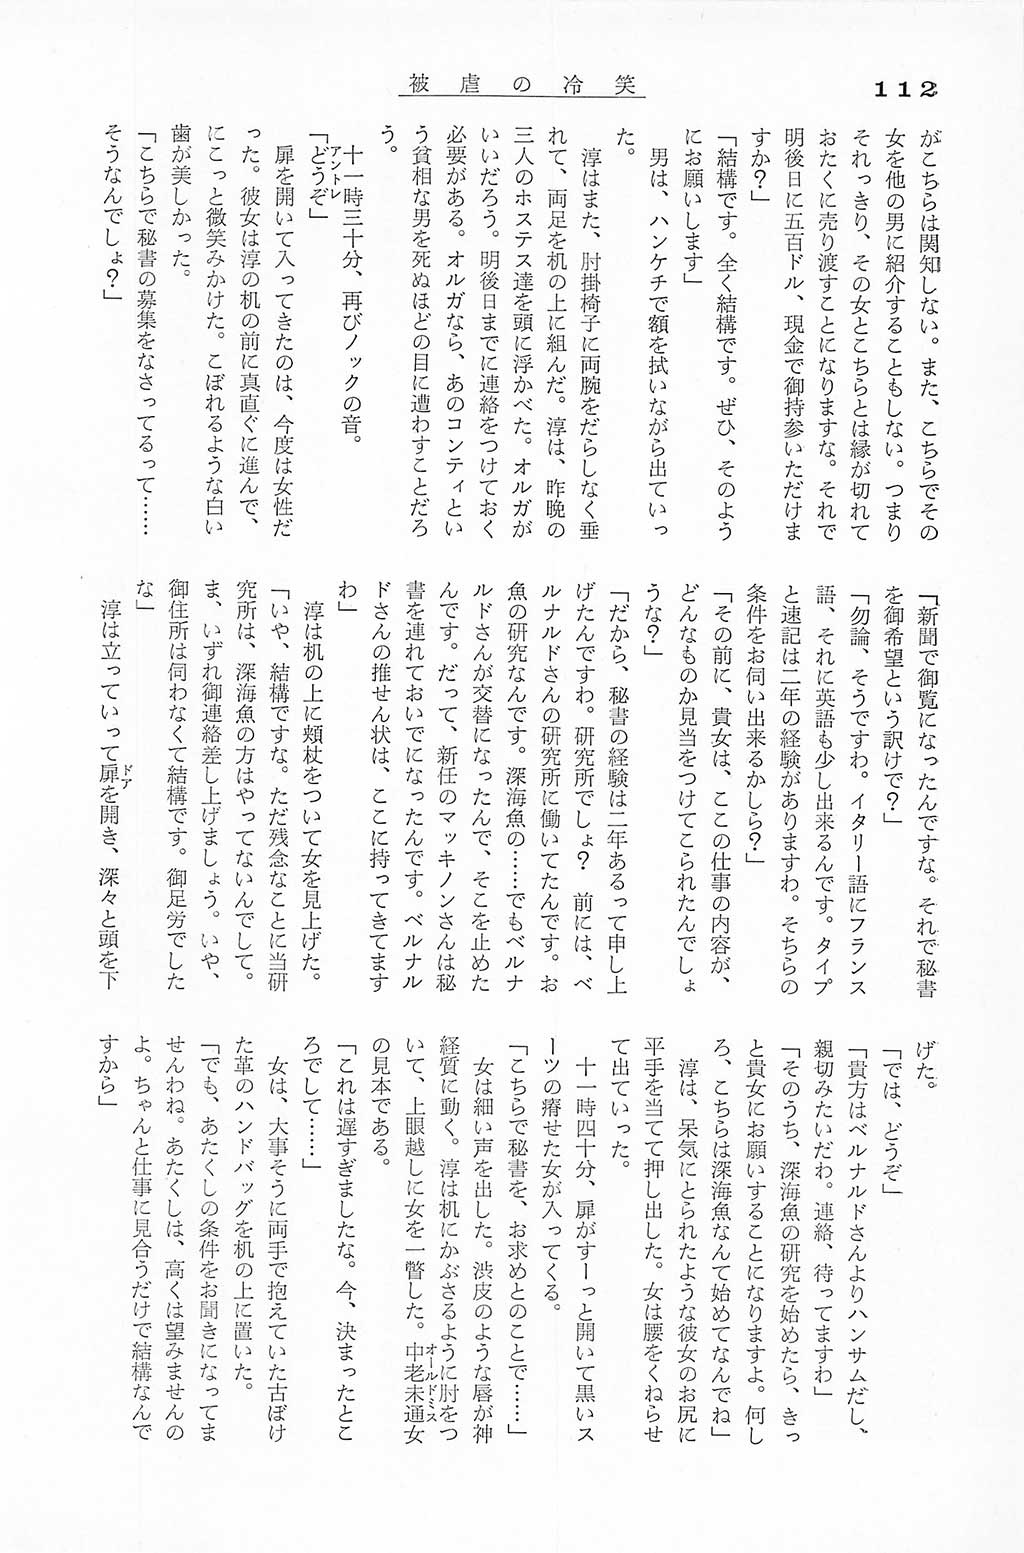 112
被虐の冷笑
がこちらは関知しない。また、こちらでその
女を他の男に紹介することもしない。つまり
それっきり、その女とこちらとは縁が切れて
おたくに売り渡すことになりますな。それで
明後日に五百ドル、現金で御持参いただけま
すか？」
「結構です。全く結構です。ぜひ、そのよう
にお願いします」
男は、ハンケチで額を拭いながら出ていっ
た。
淳はまた、肘掛椅子に両腕をだらしなく垂
れて、両足を机の上に組んだ。淳は、昨晩の
三人のホステス達を頭に浮かべた。オルガが
いいだろう。明後日までに連絡をつけておく
必要がある。オルガなら、あのコンティとい
う貧相な男を死ぬほどの目に遭わすことだろ
う。
十一時三十分、再びノックの音。
アントレ
「どうぞ」
扉を開いて入ってきたのは、今度は女性だ
った。彼女は淳の机の前に真直ぐに進んで、
にこっと微笑みかけた。こぼれるような白い
歯が美しかった。
「こちらで秘書の募集をなさってるって……
そうなんでしょ？」
「新聞で御覧になったんですな。それで秘書
を御希望という訳けで？」
「勿論、そうですわ。イタリー語にフランス
語、それに英語も少し出来るんです。タイプ
と速記は二年の経験がありますわ。そちらの
条件をお伺い出来るかしら？」
「その前に、貴女は、ここの仕事の内容が、
どんなものか見当をつけてこられたんでしょ
うな？」
「だから、秘書の経験は二年あるって申し上
げたんですわ。研究所でしょ？　前には、ベ
ルナルドさんの研究所に働いてたんです。お
魚の研究なんです。深海魚の……でもベルナ
ルドさんが交替になったんで、そこを止めた
んです。だって、新任のマッキノンさんは秘
書を連れておいでになったんです。ベルナル
ドさんの推せん状は、ここに持ってきてます
わ」
淳は机の上に頬杖をついて女を見上げた。
「いや、結構ですな。ただ残念なことに当研
究所は、深海魚の方はやってないんでして。
ま、いずれ御連絡差し上げましょう。いや、
御住所は伺わなくて結構です。御足労でした
な」
ドア
淳は立っていって扉を開き、深々と頭を下
げた。
「では、どうぞ」
「貴方はベルナルドさんよりハンサムだし、
親切みたいだわ。連絡、待ってますわ」
「そのうち、深海魚の研究を始めたら、きっ
と貴女にお願いすることになりますよ。何し
ろ、こちらは深海魚なんて始めてなんでね」
淳は、呆気にとられたような彼女のお尻に
平手を当てて押し出した。女は腰をくねらせ
て出ていった。
十一時四十分、扉がすーっと開いて黒いス
ーツの瘠せた女が入ってくる。
「こちらで秘書を、お求めとのことで……」
女は細い声を出した。渋皮のような唇が神
経質に動く。淳は机にかぶさるように肘をつ
オールドミス
いて、上眼越しに女を一瞥した。中老未通女
の見本である。
「これは遅すぎましたな。今、決まったとこ
ろでして……」
女は、大事そうに両手で抱えていた古ぼけ
た革のハンドバッグを机の上に置いた。
「でも、あたくしの条件をお聞きになってま
せんわね。あたくしは、高くは望みませんの
よ。ちゃんと仕事に見合うだけで結構なんで
すから」